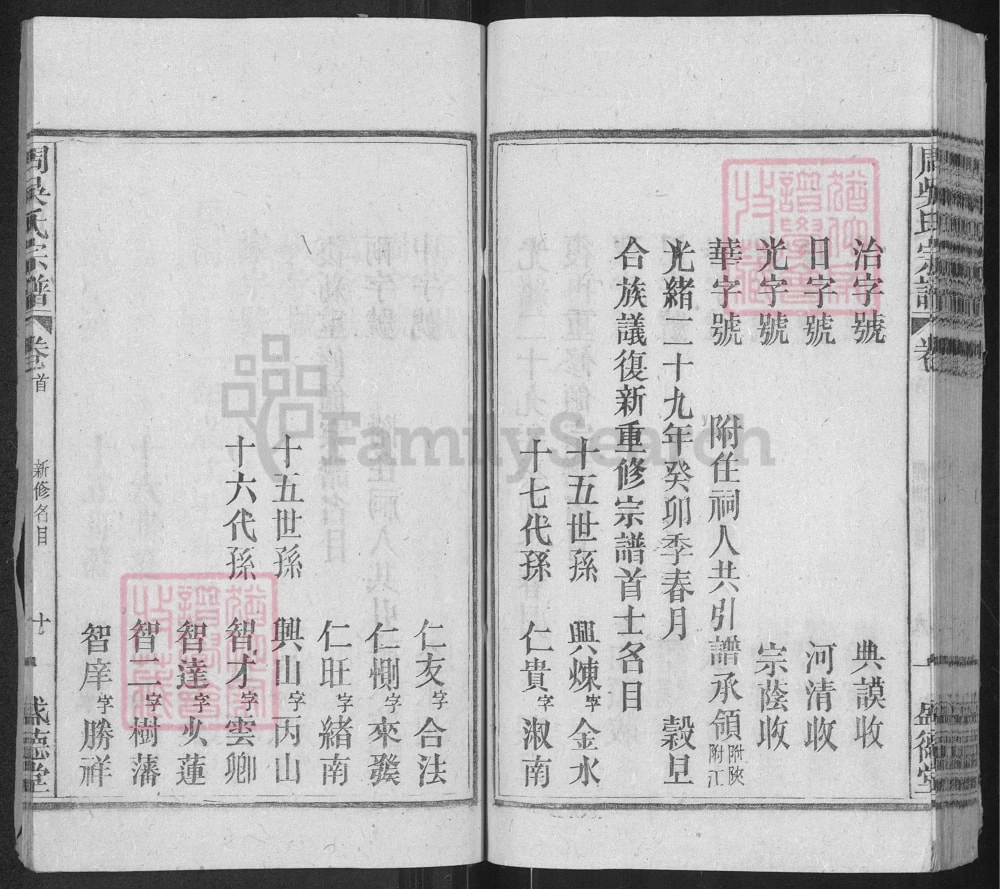 治字號 典謨收
日字號 河清收
光字號 宗蔭收
華字號 附住祠人共引譜承領 附陝 附江
光緒二十九年癸卯季春月 穀旦
合族議復新重修宗譜首士名目
十五世孫 興煉字金水
十七代孫 仁貴字淑南
仁友字合法
仁惻字來發
仁旺字緒南
十五世孫 興山字丙山
十六代孫 智才字雲卿
智達字火蓮
智二字樹藩
智庠字勝祥
周吳氏宗譜 卷首 新修名目 十 盛德堂
周吳氏宗譜 卷 盛德堂
FamilySearch